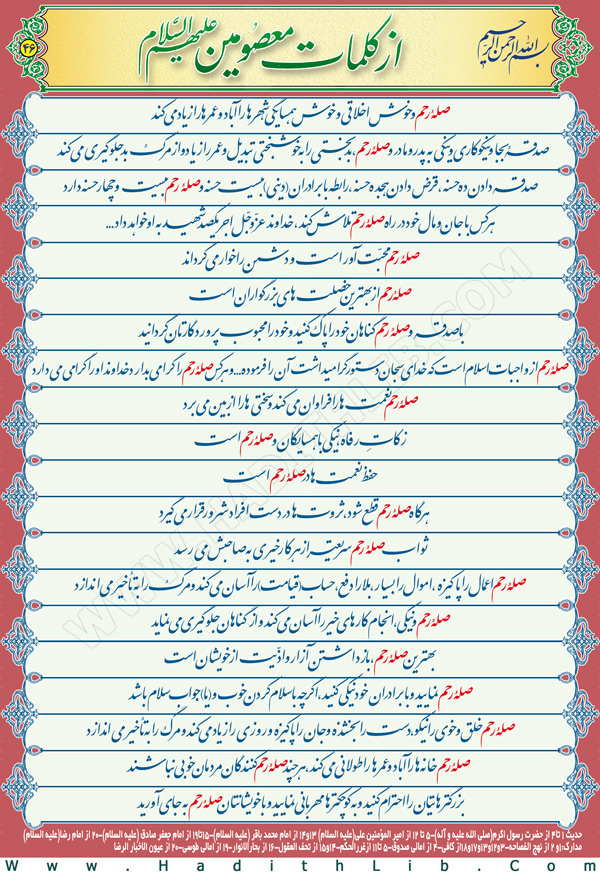 بسم الله الرحمن الرحیم
از کلمات معصومین علیهم السلام
۴۶
صلهٔ رحم و خوش اخلاقی و خوش همسایگی شهرها را آباد و عمرها را زیاد می کند
صدقهٔ بجا و نیکوکاری و نیکی به پدر و مادر و صلهٔ رحم، بدبختی را به خوشبختی تبدیل و عمر را زیاد و از مرگ بد جلوگیری می کند
صدقه دادن ده حسنه، قرض دادن هیجده حسنه، رابطه با برادران (دینی) بیست حسنه و صلهٔ رحم بیست و چهار حسنه دارد
هر کس با جان و مال خود در راه صلهٔ رحم تلاش کند، خداوند عزّوجَل اجر یکصد شهید به او خواهد داد...
صلهٔ رحم محبّت آور است و دشمن را خوار می گرداند
صلهٔ رحم از بهترین خصلت های بزرگواران است
با صدقه و صلهٔ رحم گناهان خود را پاک کنید و خود را محبوب پروردگارتان گردانید
صلهٔ رحم از واجبات اسلام است که خدای سبحان دستور گرامیداشت آن را فرموده... و هر کس صلهٔ رحم را گرامی بدارد خداوند او را گرامی می دارد
صلهٔ رحم نعمت ها را فراوان می کند و سختی ها را از بین می برد
زکات رفاه، نیکی با همسایگان و صلهٔ رحم است
حفظ نعمت ها در صلهٔ رحم است
هرگاه صلهٔ رحم قطع شود، ثروت ها در دست افراد شرور قرار می گیرد
ثواب صلهٔ رحم سریعتر از هر کار خیری به صاحبش می رسد
صلهٔ رحم اعمال را پاکیزه، اموال را بسیار، بلا را دفع، حساب (قیامت) را آسان می کند و مرگ را به تأخیر می اندازد
صلهٔ رحم و نیکی، انجام کارهای خیر را آسان می کند و از گناهان جلوگیری می نماید
بهترین صلهٔ رحم، باز داشتن آزار و اذیّت از خویشان است
صلهٔ رحم نمایید و با برادران خود نیکی کنید، اگرچه با سلام کردن خوب و (یا) جواب سلام باشد
صلهٔ رحم خلق و خوی را نیکو، دست را بخشنده و جان را پاکیزه و روزی را زیاد می کند و مرگ را به تأخیر می اندازد
صلهٔ رحم خانه ها را آباد و عمرها را طولانی می کند، هر چند صلهٔ رحم کنندگان مردمان خوبی نباشند
بزرگترهایتان را احترام کنید و به کوچکترها مهربانی نمایید و با خویشانتان صلهٔ رحم به جای آورید
حدیث ۱ تا ۴ از حضرت رسول اکرم (صلی الله علیه و آله) -۵ تا ۱۲ از امیر المؤمنین علی (علیه السلام) ۱۳و۱۴ از امام محمد باقر (علیه السلام) -۱۵ تا ۱۹ از امام جعفر صادق (علیه السلام) -۲۰ از امام رضا (علیه السلام)
مدارک: ۱و ۲ از نهج الفصاحه- ۳و۱۲و۱۳و۱۷و۱۸ از کافی- ۴ از امالی صدوق- ۵ تا ۱۱ از غررالحکم- ۱۴و۱۵ از تحف العقول- ۱۶ از بحارالانوار- ۱۹ از امالی طوسی- ۲۰ از عیون الاخبار الرضا
Www.HadithLib.Com
WWW.HADITHLIB.COM